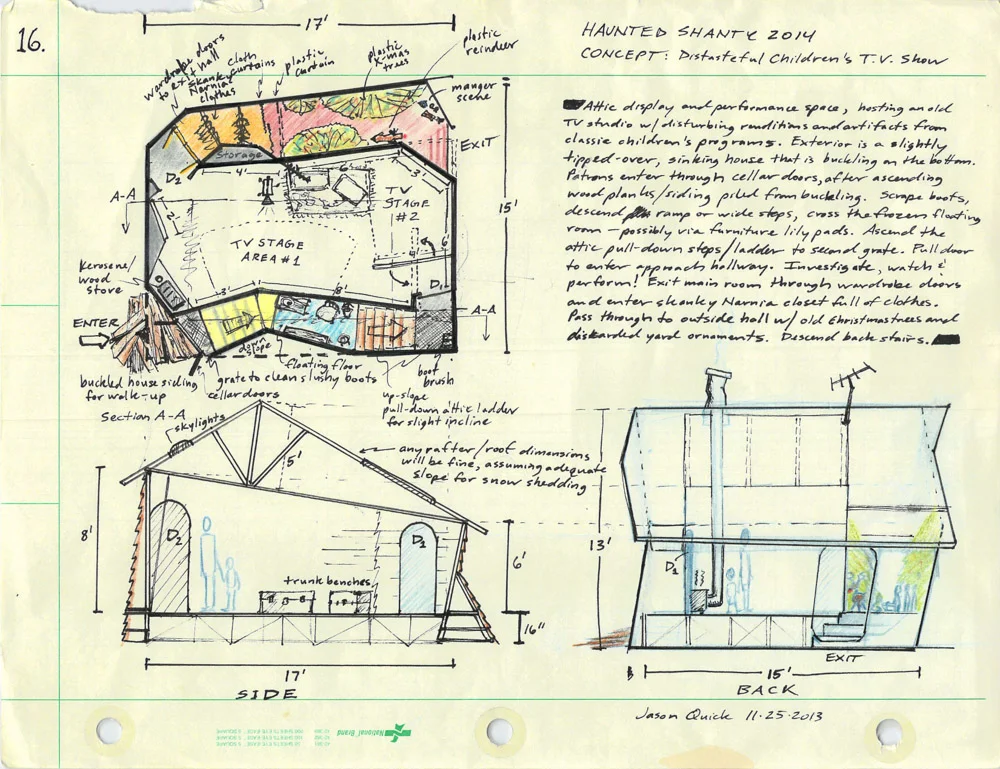 16.
17'
HAUNTED SHANTY 2014
CONCEPT: Distasteful Children's T.V. Show
Attic display and performance space, hosting an old
TV studio w/ disturbing renditions and artifacts from
classic children's programs. Exterior is a slightly
tipped-over, sinking house that is buckling on the bottom.
Patrons enter through cellar doors, after ascending
wood planks/siding piled from buckling. Scrape boots,
descend ramp or wide steps, cross the frozen floating
room – possibly via furniture lily pads. Ascend the
attic pull-down steps/ladder to second grate. Pull door
to enter approach hallway. Investigate, watch &
perform! Exit main room through wardrobe doors
and enter skanky Narnia closet full of clothes.
Pass through to outside hall w/ old Christmas trees and
diskarded yard ornaments. Descend back stairs.
wardrobe doors
to exit hall
skanky
Narnia
clothes
cloth
curtains
plastic
curtain
plastic
x-mas
trees
plastic
reindeer
manger
scene
EXIT
15'
Storage
D2
4'
6'
3'
A-A
2'
TV
STAGE
#2
TV STAGE
AREA #1
6'
4'
D1
Kerosene/
wood
stove
3'
8'
A-A
ENTER
down
slope
floating floor
E
buckled house siding
for walk-up
grate to clean slushy boots
cellar doors
boot
brush
up-slope
pull-down attic ladder
for slight incline
Section A-A
skylights
5'
any rafter/roof dimensions
will be fine, assuming adequate
slope for snow shedding
8'
D2
D1
trunk benches
6'
16"
17'
SIDE
13'
D1
EXIT
15'
BACK
Jason Quick 11-25-2013
National Brand